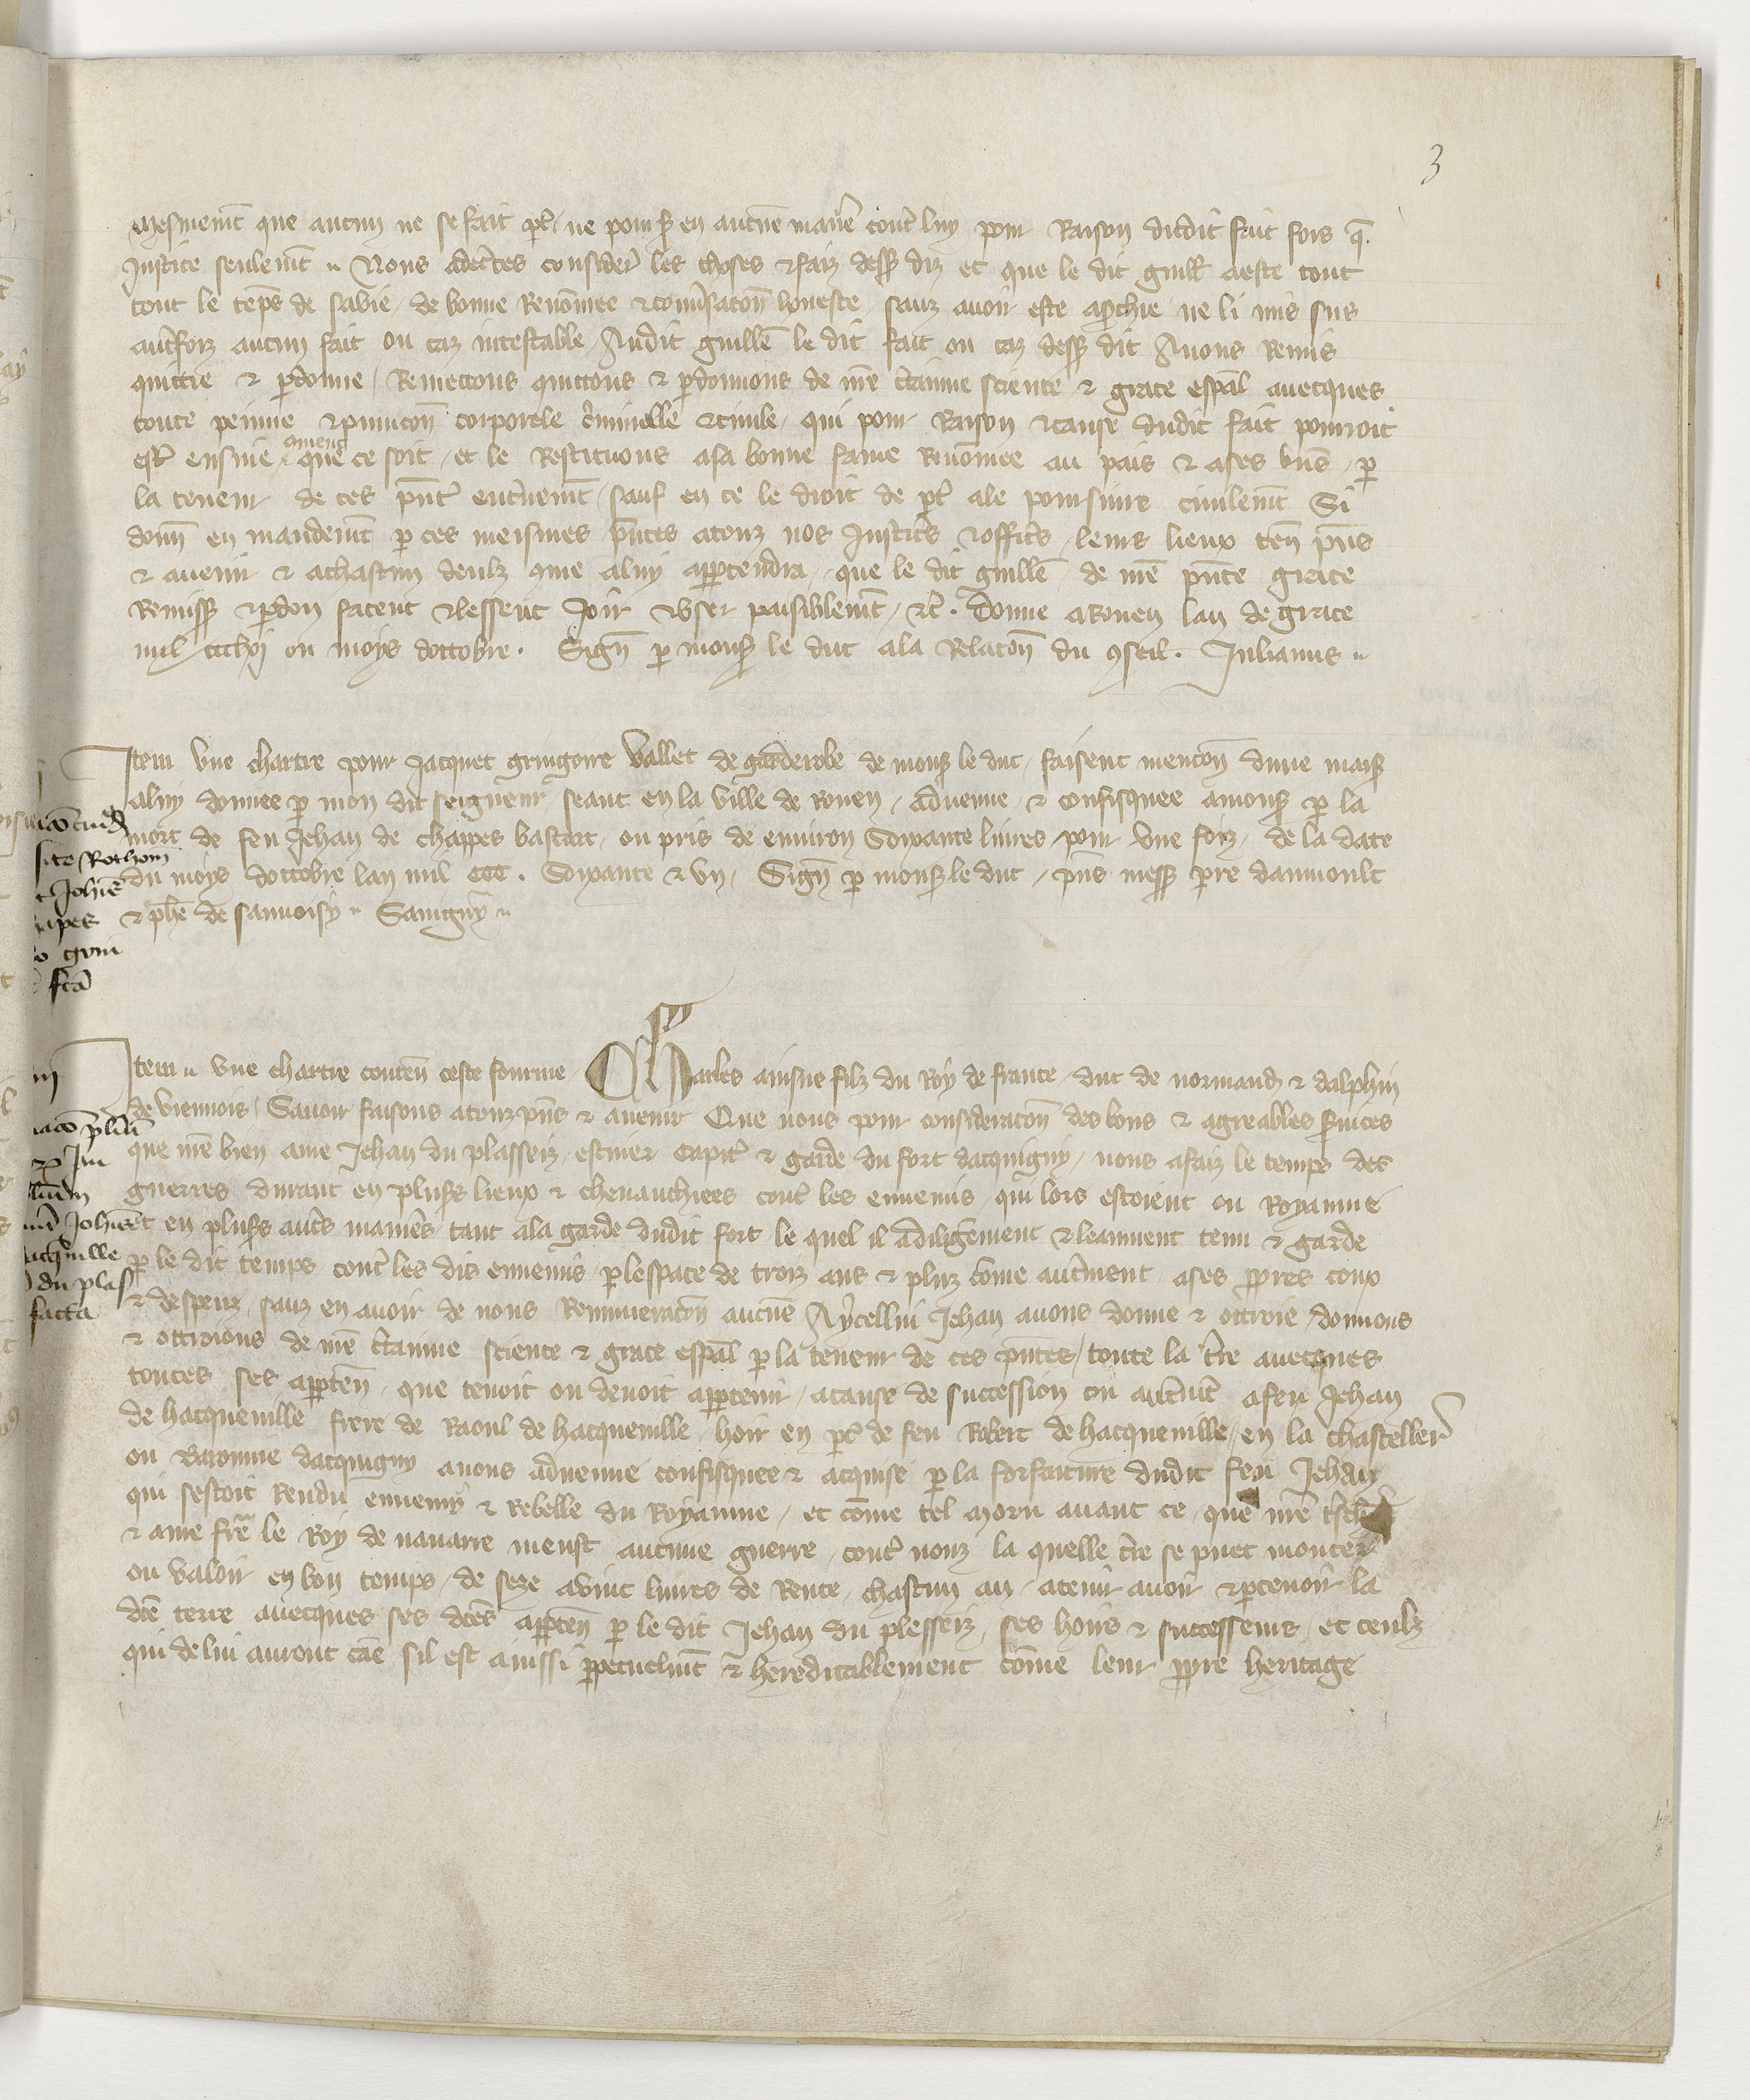 3
mesmemt que aucun ne se fait pt̃ ne pours̃ en aucũe manẽ cont̃ luy pour Raison dudit fait fors q̃
Justice seulemt Nous adcc̃tes consider̃ les choses & faiz dess̃ diz et que le dit guill̃ a este tout
tout le tẽps de sa vie de bonne Renõmee & convs̃acõn honeste sanz avoir este ap̃chie ne li mis sus
aut̃foiz aucun fait ou caz Audit guill̃e le dit fait ou caz dess̃ dit Avons Remis
quictie & p̃donne Remectons quictons & p̃donnons de nr̃e c̃tainne science & grace esp̃al avecques
toute peinne & punicõn corporele c̃iminelle & civile qui pour Raison & cause dudit fait pourroit
est̃ ensuie coment que ce soit et le Restituons a sa bonne fame Renõmee au pais & a ses biẽs p̃
la teneur de ces p̃nt̃ ent̃nemt sauf en ce le droit de pt̃ a le poursuire civilemt Si
donñ en mandemt p̃ ces meismes p̃ntes a touz nos Justic̃s & offic̃s leurs lieux teñ p̃ns
& avenir & a chascun deulz 9me a luy app̃tendra que le dit guill̃e de nr̃e p̃nte grace
Remiss̃ & p̃don facent & lessent Joir & user paisiblemt &c̃. Donne a Rouen lan de grace
mil ccclxj ou moys doctobre. Sigñ p̃ mons̃ le duc a la Relacõn du 9seil. Julianus
Item une chartre pour Jacquet gringoire vallet de garderobe de mons̃ le duc faisent mencõn dune mais̃
a luy donnee p̃ mon dit seigneur seant en la ville de Rouen advenue & confisquee a mons̃ p̃ la
mort de feu Jehan de chappes bastart ou pris de environ Soixante livres pour une foiz de la date
du moys doctobre lan mil ccc. Soixante & un Sigñ p̃ mons̃ le duc p̃ns mess̃ p̃re danmoult
& phẽ de sanvoisy Savigny
site Rothom
t Johñe
apes
fcã
Item une chartre conteñ ceste fourme Charles ainsne filz du Roy de france duc de normand̃ & dalphin
de viennois Savoir faisons a touz p̃ns & avenir Que nous pour consideracõn des bons & agreables s̃vices
que nr̃e bien ame Jehan du plasseiz escuier capit̃ & garde du fort dacquigny nous a faiz le temps des
guerres durant en plus̃s lieux & chevauchiees cont̃ les ennemis qui lors estoient ou Royaume
et en plus̃s aut̃s manier̃s tant a la garde dudit fort le quel il a diligem̃ent & leaument tenu & garde
p̃ le dit temps cont̃ les dis ennemis p̃ lespace de troiz ans & pluz cõme aut̃ment a ses p̃pres coux
& despenz sanz en avoir de nous Remuneracõn aucũe A ycellui Jehan avons donne & ottroie donnons
& ottroions de nr̃e c̃tainne science & grace esp̃al p̃ la teneur de ces p̃ntes toute la t̃re avecques
toutes ses app̃teñ que tenoit ou devoit app̃tenir a cause de succession ou aut̃mt a feu Jehan
de hacqueville frere de Raoul de hacqueville hoir en pt̃ de feu Robert de hacqueville en la chasteller̃
ou Baronnie dacquigny a nous advenue confisquee & acquise p̃ la forfaiture dudit feu Jehan
qui sestoit Rendu ennemy & Rebelle du Royaume et cõme tel moru avant ce que nr̃e t̃sch̃
& ame fr̃e le Roy de navarre meust aucune guerre cont̃ nouz la quelle t̃re se puet monter
ou valoir en bon temps de seze a vint livres de Rente chascun an a tenir avoir & p̃cevoir la
dc̃e terre avecques ses dc̃es app̃teñ p̃ le dit Jehan du plesseiz ses hoirs & successeurs et ceulz
qui de lui auront cãe sil est ainssi p̃petuelmt & hereditablement cõme leur p̃pre heritage
Johñe
du plas
facta